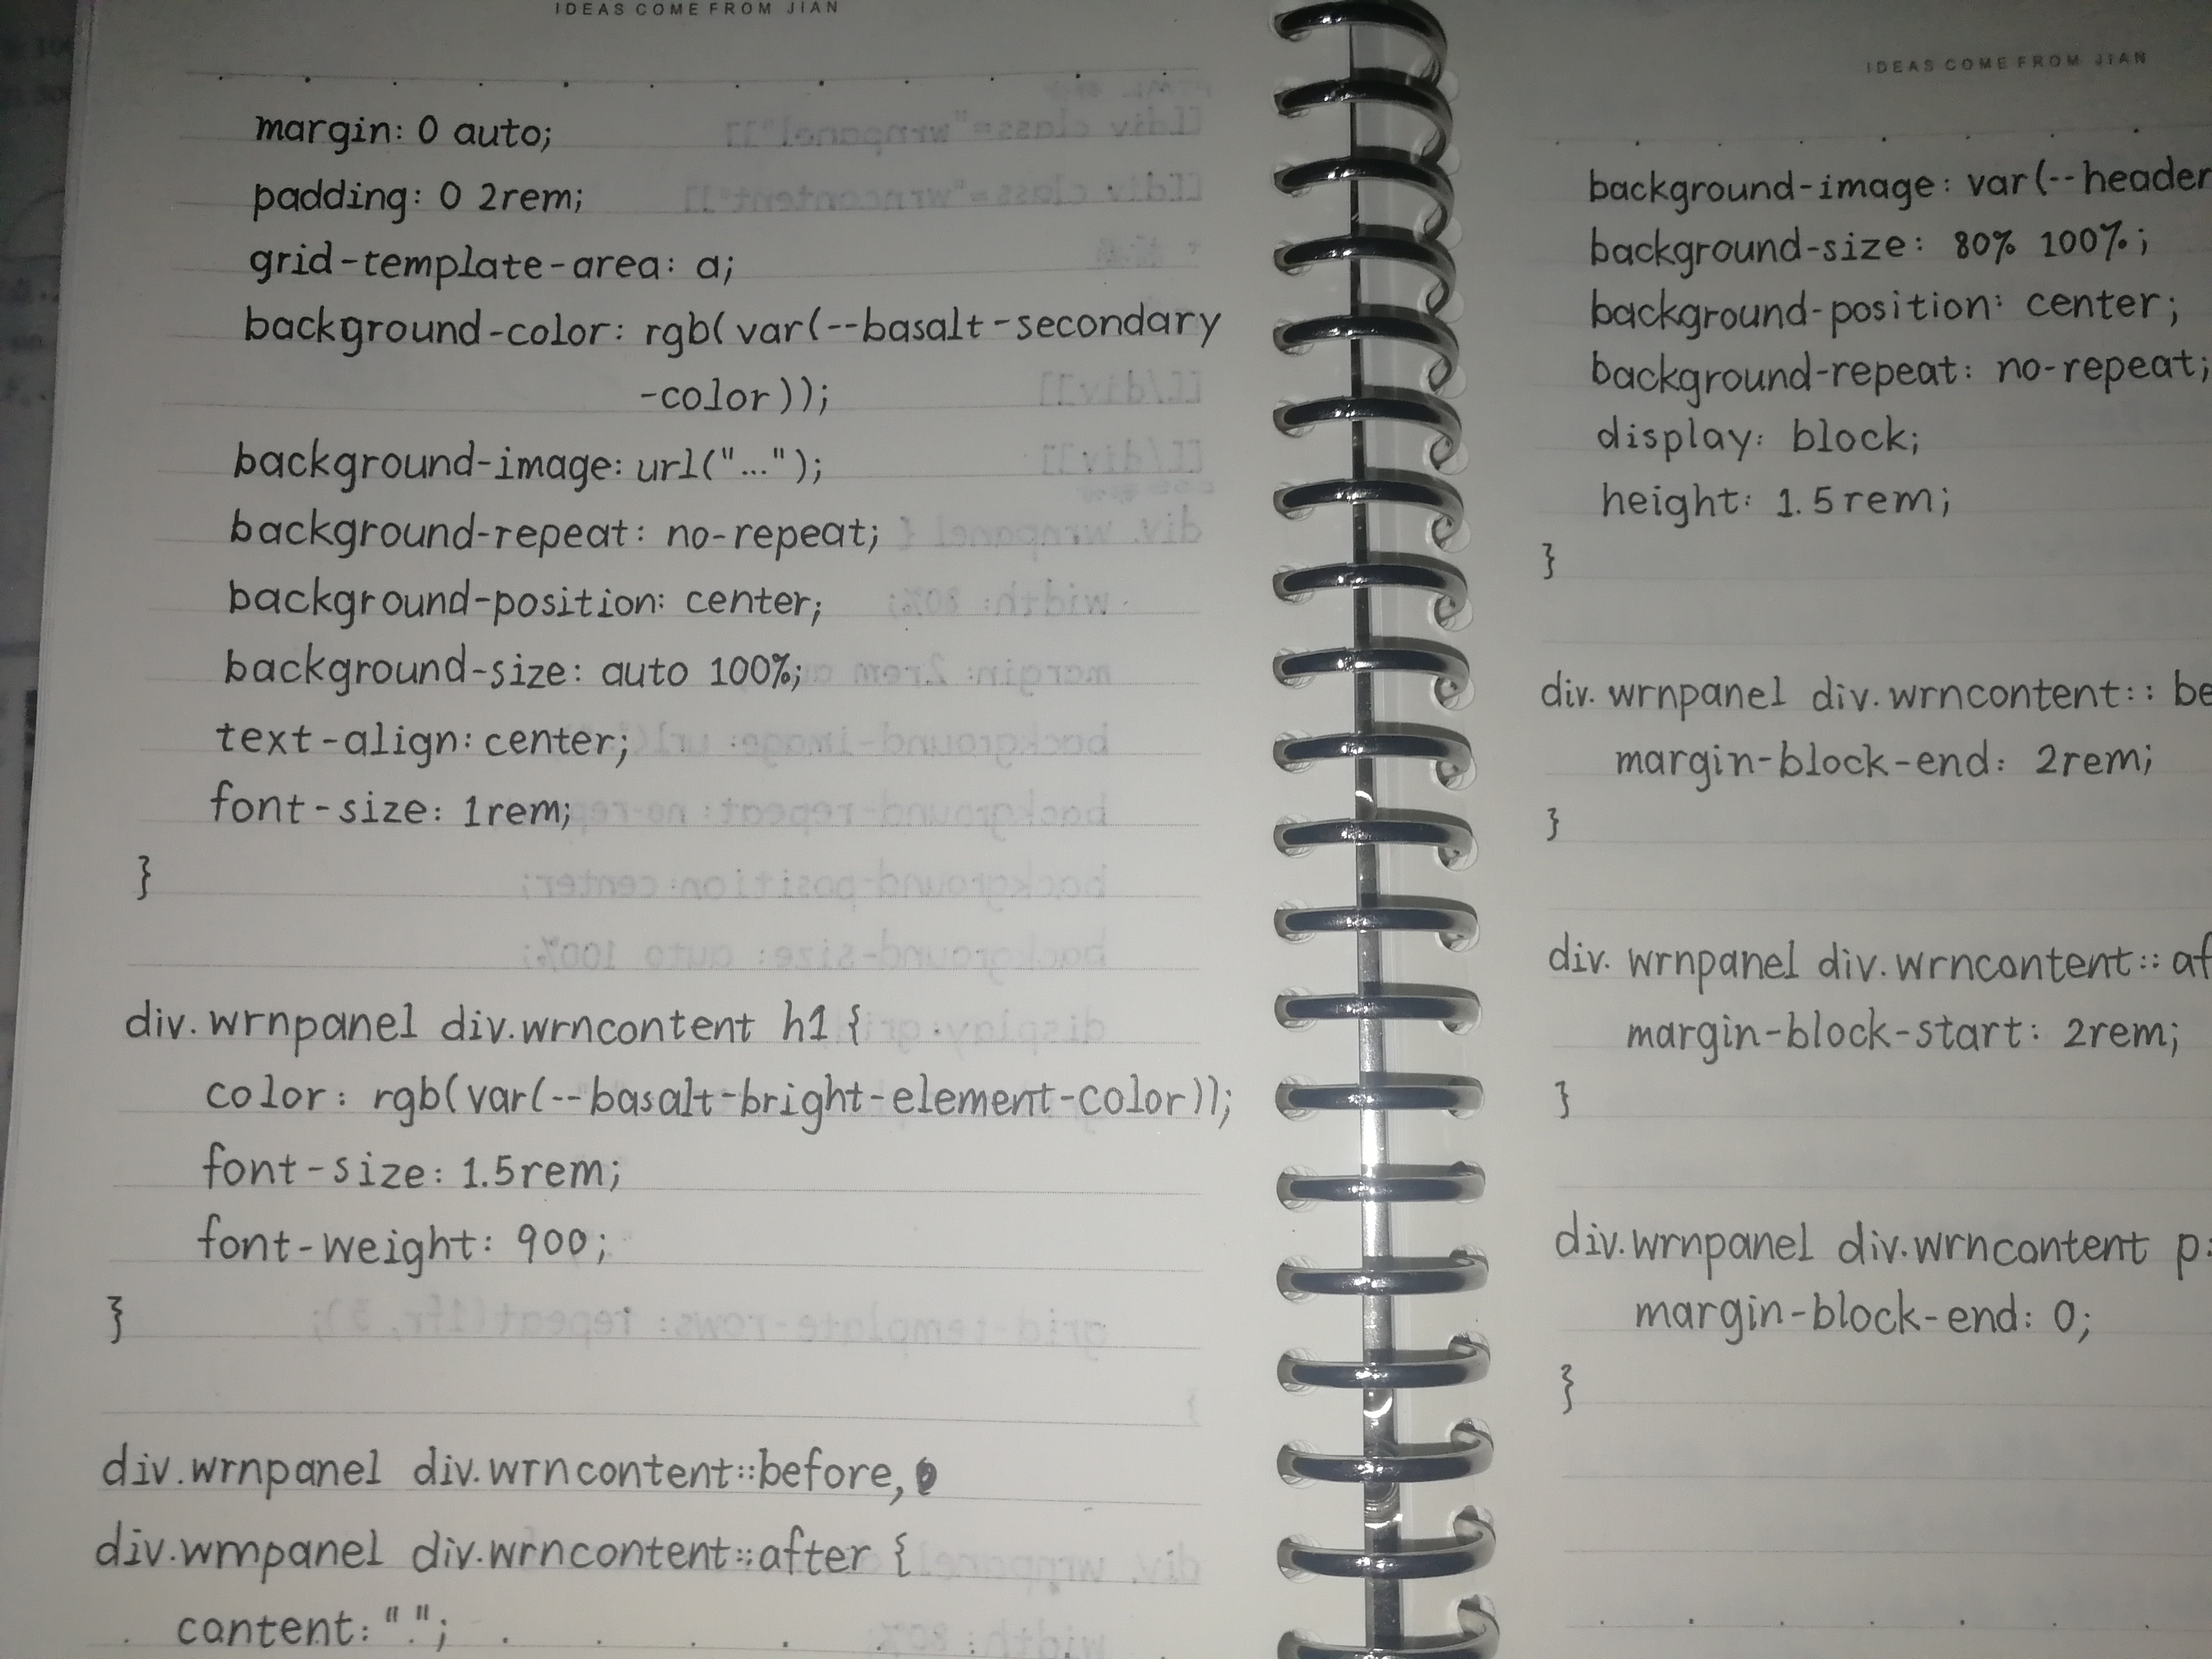 IDEAS COME FROM JIAN
margin: 0 auto;
padding: 0 2rem;
grid-template-area: a;
background-color: rgb(var(--basalt-secondary
-color));
background-image: url("...");
background-repeat: no-repeat;
background-position: center;
background-size: auto 100%;
text-align: center;
font-size: 1rem;
}
div.wrnpanel div.wrncontent h1 {
color: rgb(var(--basalt-bright-element-color));
font-size: 1.5rem;
font-weight: 900;
}
div.wrnpanel div.wrncontent::before,
div.wrnpanel div.wrncontent::after {
content: " ";
IDEAS COME FROM JIAN
background-image: var(--header
background-size: 80% 100%;
background-position: center;
background-repeat: no-repeat;
display: block;
height: 1.5rem;
}
div.wrnpanel div.wrncontent::be
margin-block-end: 2rem;
}
div.wrnpanel div.wrncontent::af
margin-block-start: 2rem;
}
div.wrnpanel div.wrncontent p:
margin-block-end: 0;
}